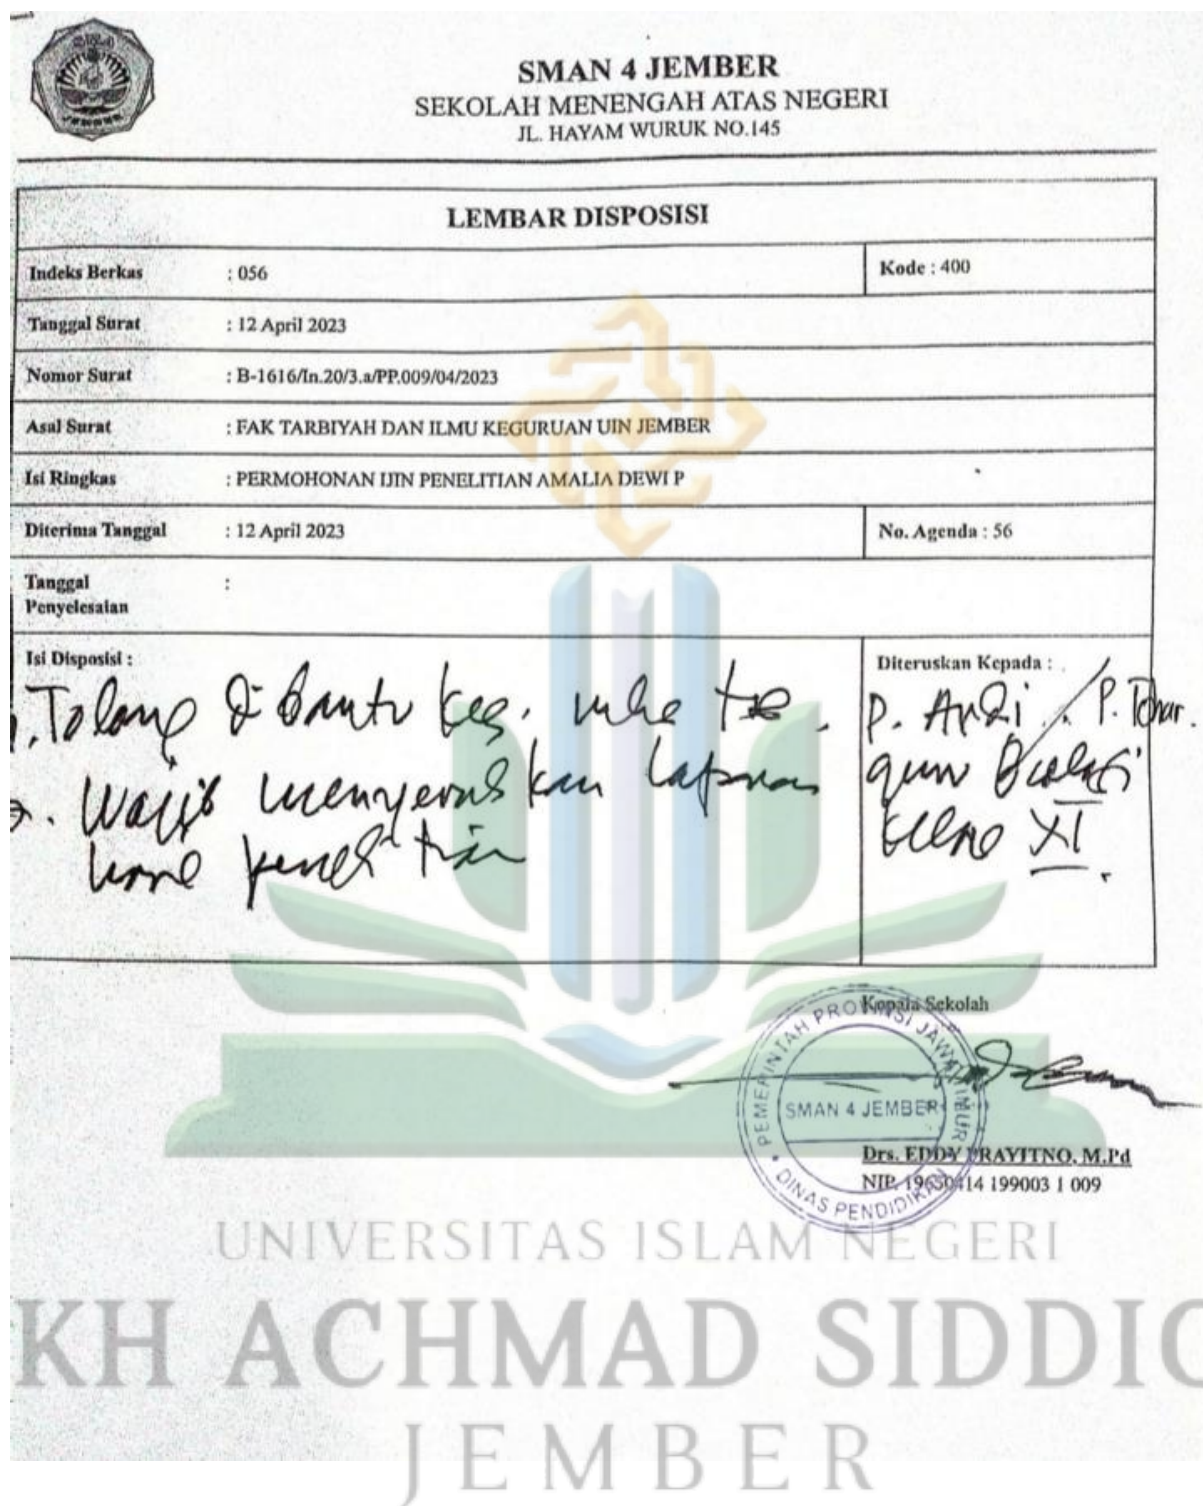 SMA 4
JEMBER
SMAN 4 JEMBER
SEKOLAH MENENGAH ATAS NEGERI
JL. HAYAM WURUK NO.145
LEMBAR DISPOSISI
Indeks Berkas : 056 Kode : 400
Tanggal Surat : 12 April 2023
Nomor Surat : B-1616/In.20/3.a/PP.009/04/2023
Asal Surat : FAK TARBIYAH DAN ILMU KEGURUAN UIN JEMBER
Isi Ringkas : PERMOHONAN IJIN PENELITIAN AMALIA DEWI P
Diterima Tanggal : 12 April 2023 No. Agenda : 56
Tanggal :
Penyelesaian
Isi Disposisi : Diteruskan Kepada :
Tolong dibantu keg. P. Andi / P.
. Wajib menyerahkan laporan guru Biologi
penelitian XI.
Kepala Sekolah
PEMERINTAH PROVINSI JAWA TIMUR
SMAN 4 JEMBER
DINAS PENDIDIKAN
Drs. EDDY PRAYITNO, M.Pd
NIP. 19650414 199003 1 009
UNIVERSITAS ISLAM NEGERI
KH ACHMAD SIDDIQ
JEMBER